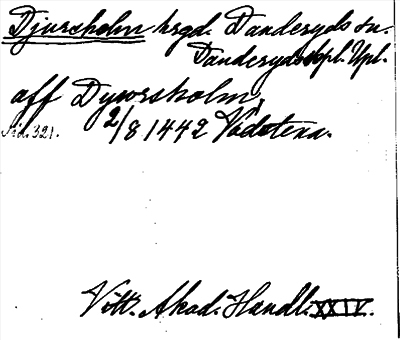 Djursholm hrgd. Danderyds sn.
Danderyds skpl. Upl.
aff Dywrsholm,
Sid. 321. 2/8 1442 Vadstena.
Vitt. Akad. Handl. XXIV.